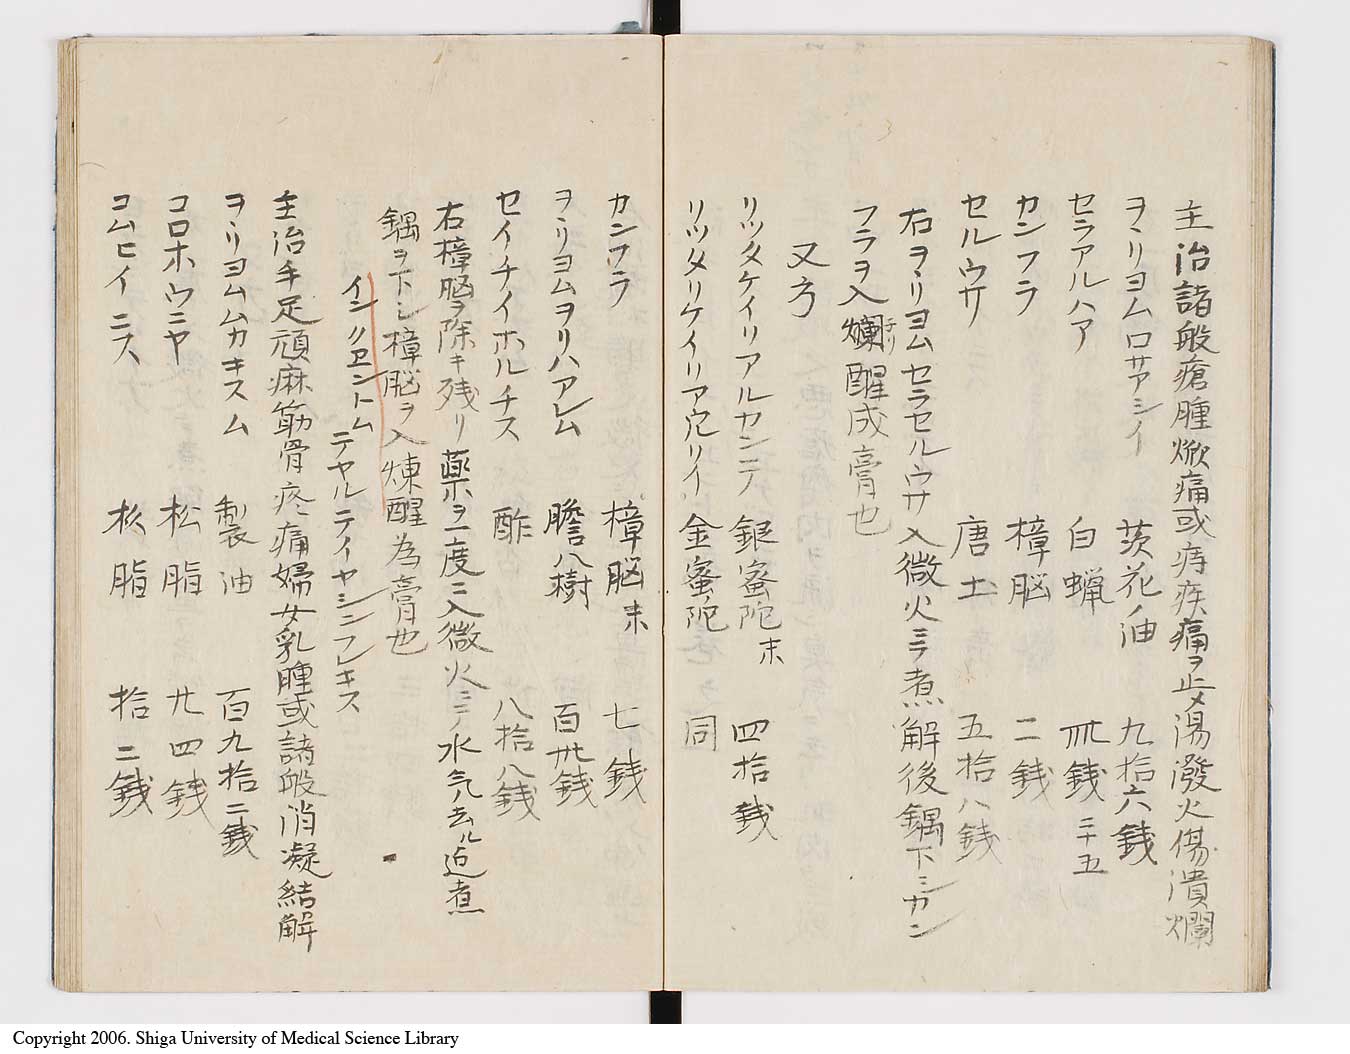 主治諸般瘡腫焮痛或痔疾痛ヲ止メ湯潑火傷潰爛
ヲヽリヨムロサアシイ 茨花ノ油 九拾六銭
セラアルハア 白蝋 卅銭 三十五
カンフラ 樟脳 二銭
セルウサ 唐土 五拾八銭
右ヲヽリヨムセラセルウサ入微火ニテ煮解後鍋下シカン
フラヲ入爛醒成膏也
又方
リツタケイリアルカンテ 銀蜜陀末 四拾銭
リツタリケイリアウリイ 金蜜陀 同
カンフラ 樟脳末 七銭
ヲヽリヨムヲリハアレム 膽八樹 百卅銭
セイチイホルチス 酢 八拾八銭
右樟脳ヲ除キ残リ薬ヲ一度ニ入微火ニテ水気ノ去ル迠煮
鍋ヲ下シ樟脳ヲ入煉醒為膏也
インクエントム テヤルテイヤシンフレキス
主治手足頑麻筋骨疼痛婦女乳腫或諸般消凝結解
ヲヽリヨムムカキスム 製油 百九拾二銭
コロホウニヤ 松脂 廿四銭
コムヒイニス 松脂 拾二銭
Copyright 2006. Shiga University of Medical Science Library